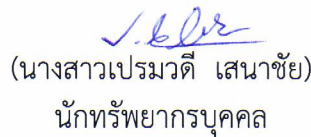 (นางสาวเปรมวดี เสนาชัย)
นักทรัพยากรบุคคล